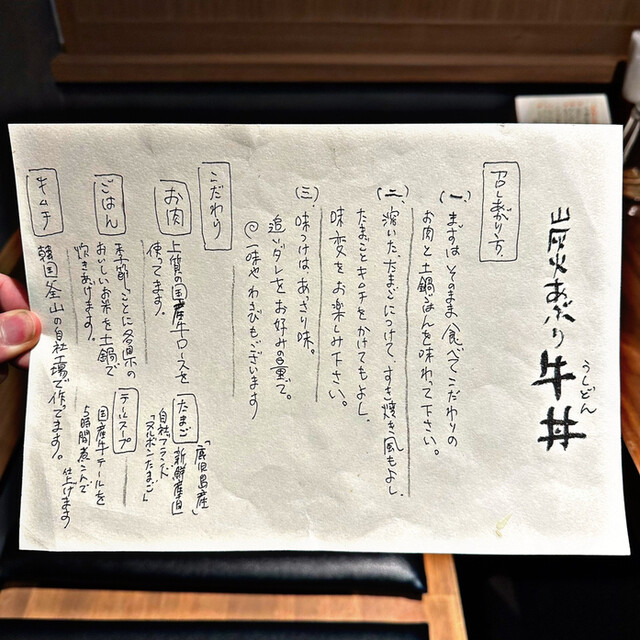 炭火あぶり牛丼
うしどん
召しあがり方
(一) まずはそのまま食べてこだわりの
お肉と土鍋ごはんを味わって下さい。
(二) 溶いたたまごにつけて、すき焼き風もよし、
たまごとキムチをかけてもよし、
味変をお楽しみ下さい。
(三) 味つけは、あっさり味。
追いダレをお好み量で。
◎一味やわさびもございます
こだわり
お肉
上質の国産牛ロースを
使ってます。
たまご
「鹿児島産」
新鮮産直
自社ブランド
「ヌルボンたまご」
ごはん
季節ごとに各県の
おいしいお米を土鍋で
炊きあげます。
テールスープ
国産牛テールを
5時間煮こんで
仕上げます
キムチ
韓国釜山の自社工場で作てます。